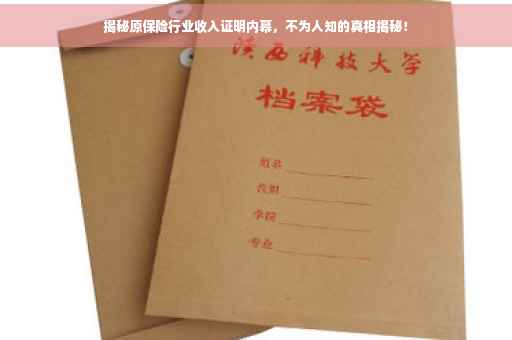 揭秘原保险行业收入证明内幕，不为人知的真相揭秘！
陕西科技大学
档案袋
姓名
学院
专业